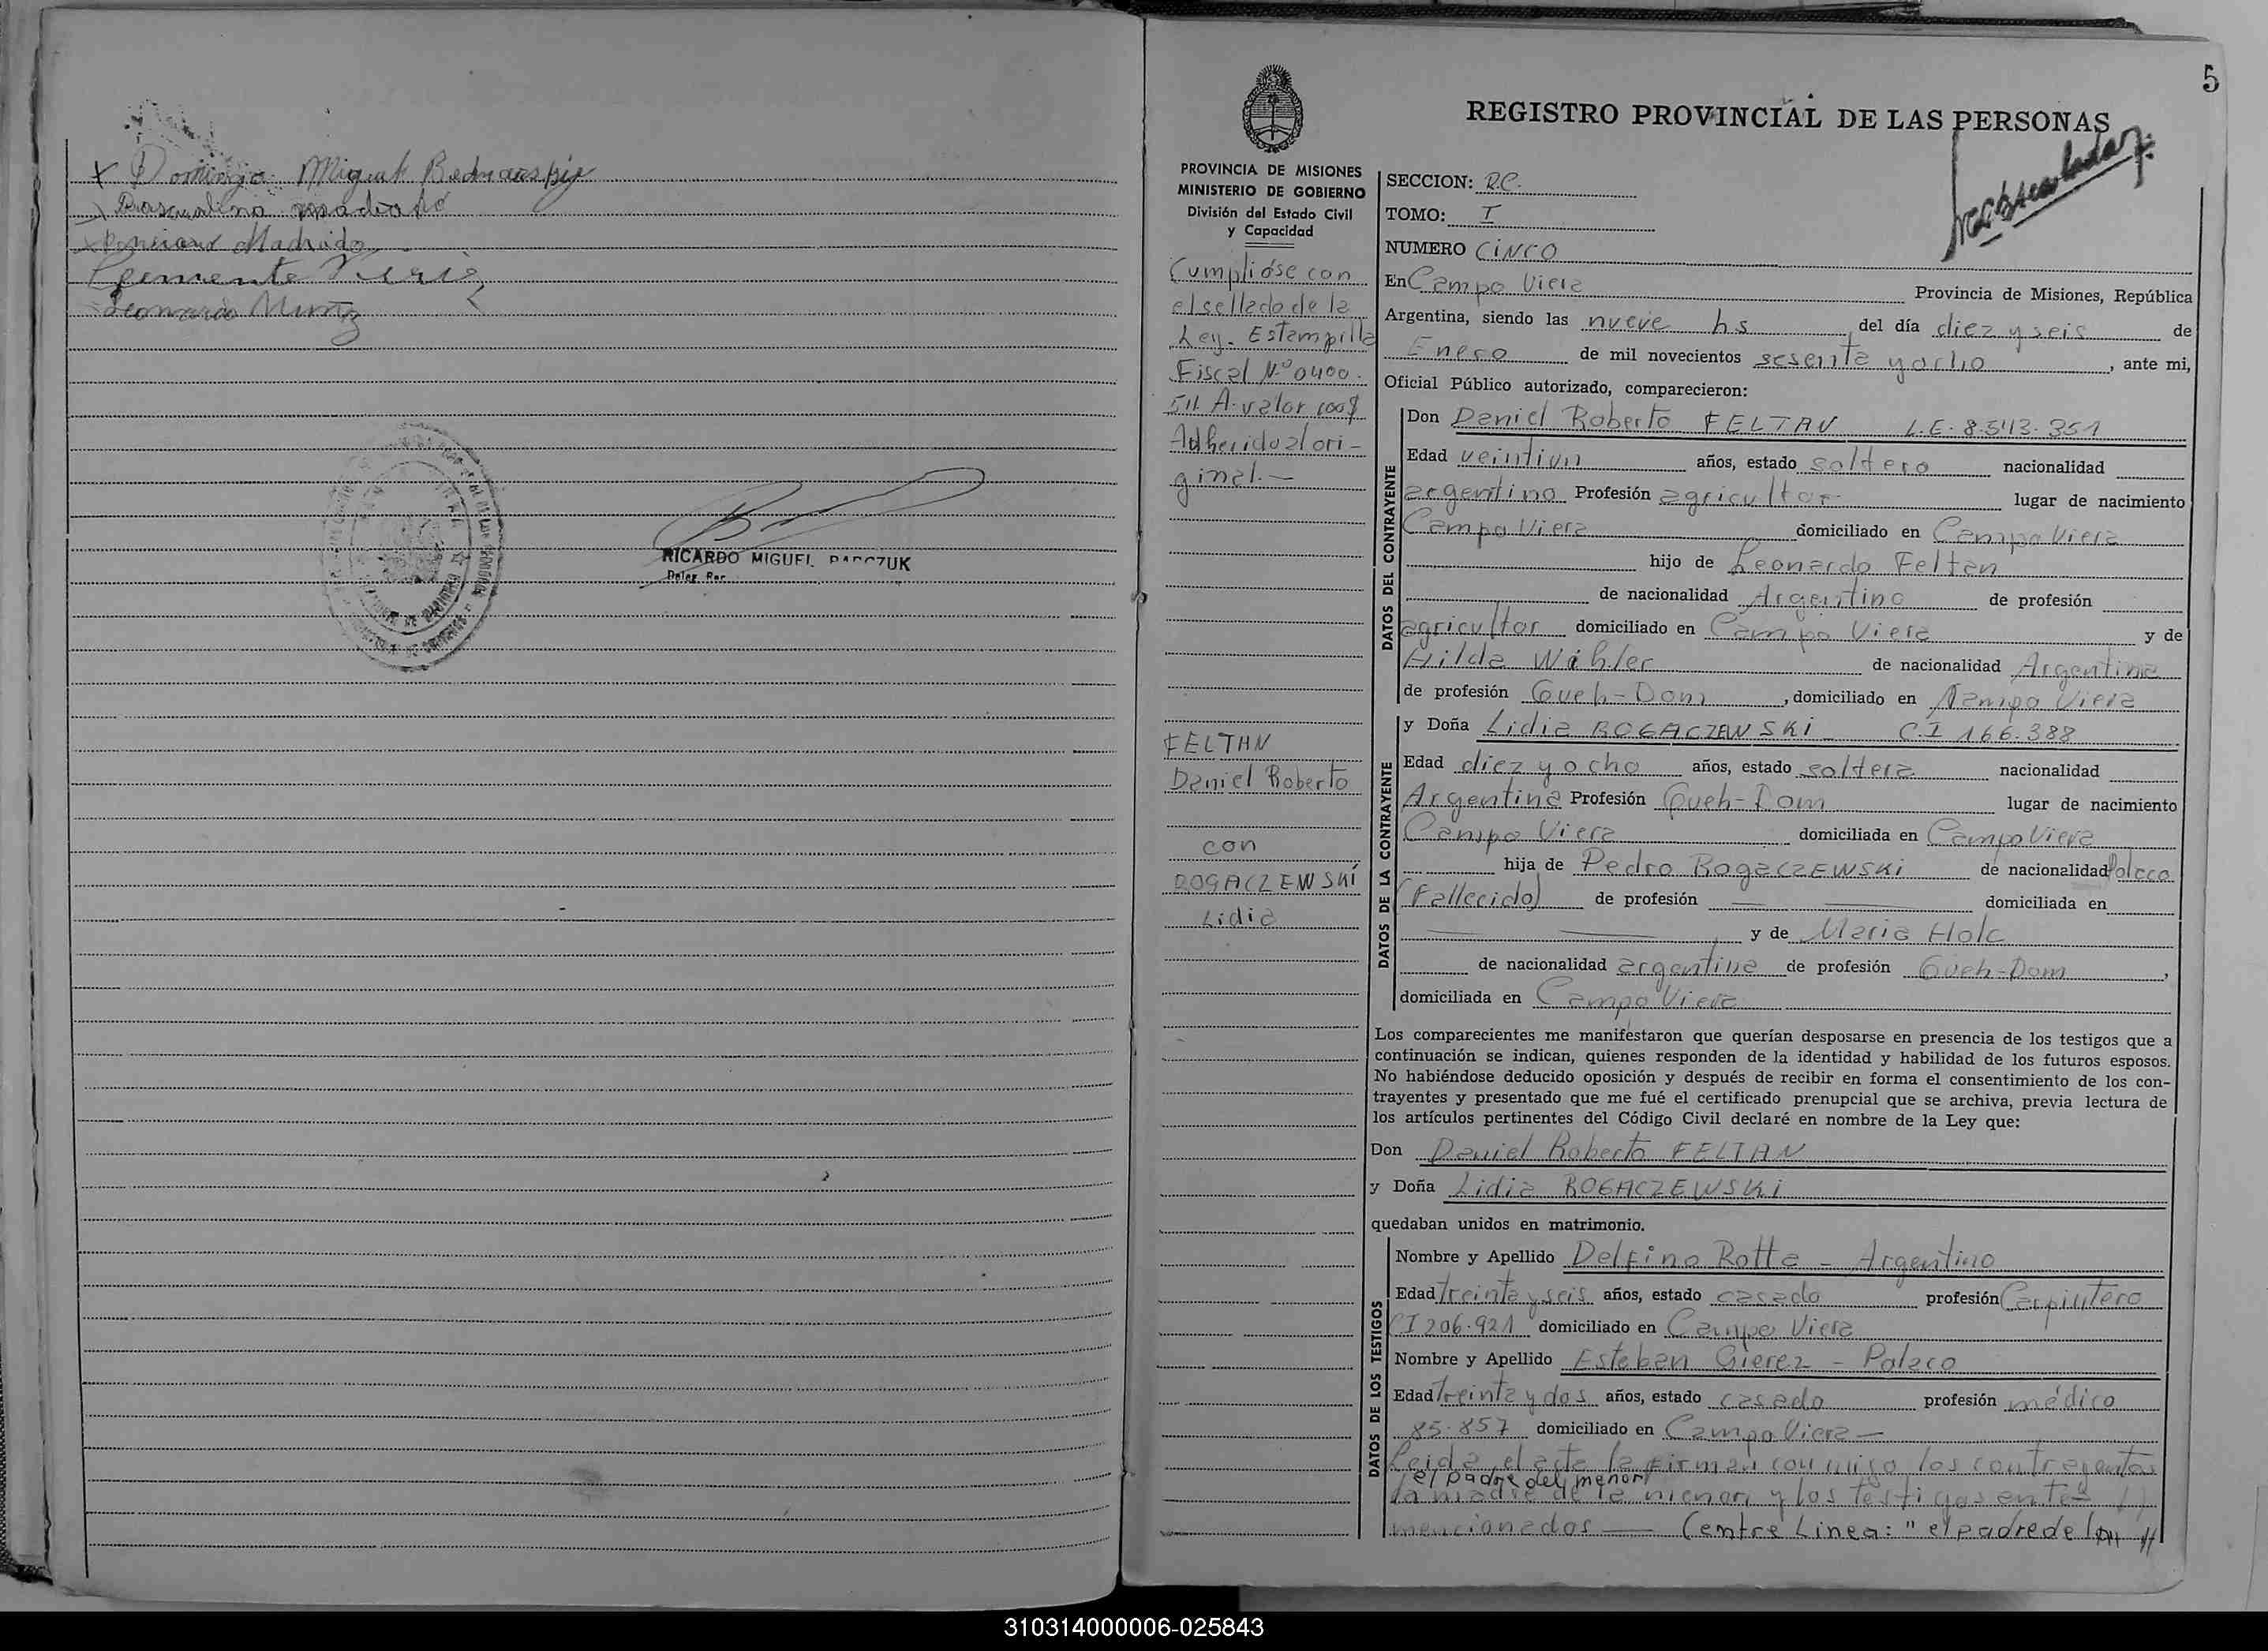 Domingo Miguel
Clemente
Leonardo Muniz
RICARDO MIGUEL
5
REGISTRO PROVINCIAL DE LAS PERSONAS
PROVINCIA DE MISIONES
MINISTERIO DE GOBIERNO
División del Estado Civil
y Capacidad
Cumplióse con
el sellado de la
Ley. Estampilla
Fiscal Nº 0400.
511. A. valor 100$
Adherido al ori-
ginal.-
FELTAN
Daniel Roberto
con
ROGACZEWSKi
Lidia
SECCION: R.C.
TOMO: I
NUMERO CiNCO
En Campo Viera Provincia de Misiones, República
Argentina, siendo las nueve hs del día diez y seis de
Enero de mil novecientos sesenta y ocho, ante mi,
Oficial Público autorizado, comparecieron:
DATOS DEL CONTRAYENTE
Don Daniel Roberto FELTAN L.E. 8.543.351
Edad veintiun años, estado soltero nacionalidad
argentino Profesión agricultor lugar de nacimiento
Campo Viera domiciliado en Campo Viera
hijo de Leonardo Feltan
de nacionalidad Argentino de profesión
agricultor domiciliado en Campo Viera y de
Hilda Wihler de nacionalidad Argentina
de profesión Queh-Dom, domiciliado en Campo Viera
DATOS DE LA CONTRAYENTE
y Doña Lidia ROGACZEWSKi C.I 166.388
Edad diez y ocho años, estado soltera nacionalidad
Argentina Profesión Queh-Dom lugar de nacimiento
Campo Viera domiciliada en Campo Viera
hija de Pedro RogaczEWSKi de nacionalidad Polaco
(Fallecido) de profesión — — domiciliada en
— — y de Maria Holc
de nacionalidad argentina de profesión Queh-Dom,
domiciliada en Campo Viera
Los comparecientes me manifestaron que querían desposarse en presencia de los testigos que a
continuación se indican, quienes responden de la identidad y habilidad de los futuros esposos.
No habiéndose deducido oposición y después de recibir en forma el consentimiento de los con-
trayentes y presentado que me fué el certificado prenupcial que se archiva, previa lectura de
los artículos pertinentes del Código Civil declaré en nombre de la Ley que:
Don Daniel Roberto FELTAN
y Doña Lidia ROGACZEWSKi
quedaban unidos en matrimonio.
DATOS DE LOS TESTIGOS
Nombre y Apellido Delfino Rotta - Argentino
Edad treinta y seis años, estado casado profesión Carpintero
CI 206.921 domiciliado en Campo Viera
Nombre y Apellido Esteban Gierez - Polaco
Edad treinta y dos años, estado casado profesión médico
85.857 domiciliado en Campo Viera -
Leida el acta la firman conmigo los contrayentes
el padre del menor
la madre de la menor y los testigos antes
mencionados — (entre Linea: "el padre del
310314000006-025843